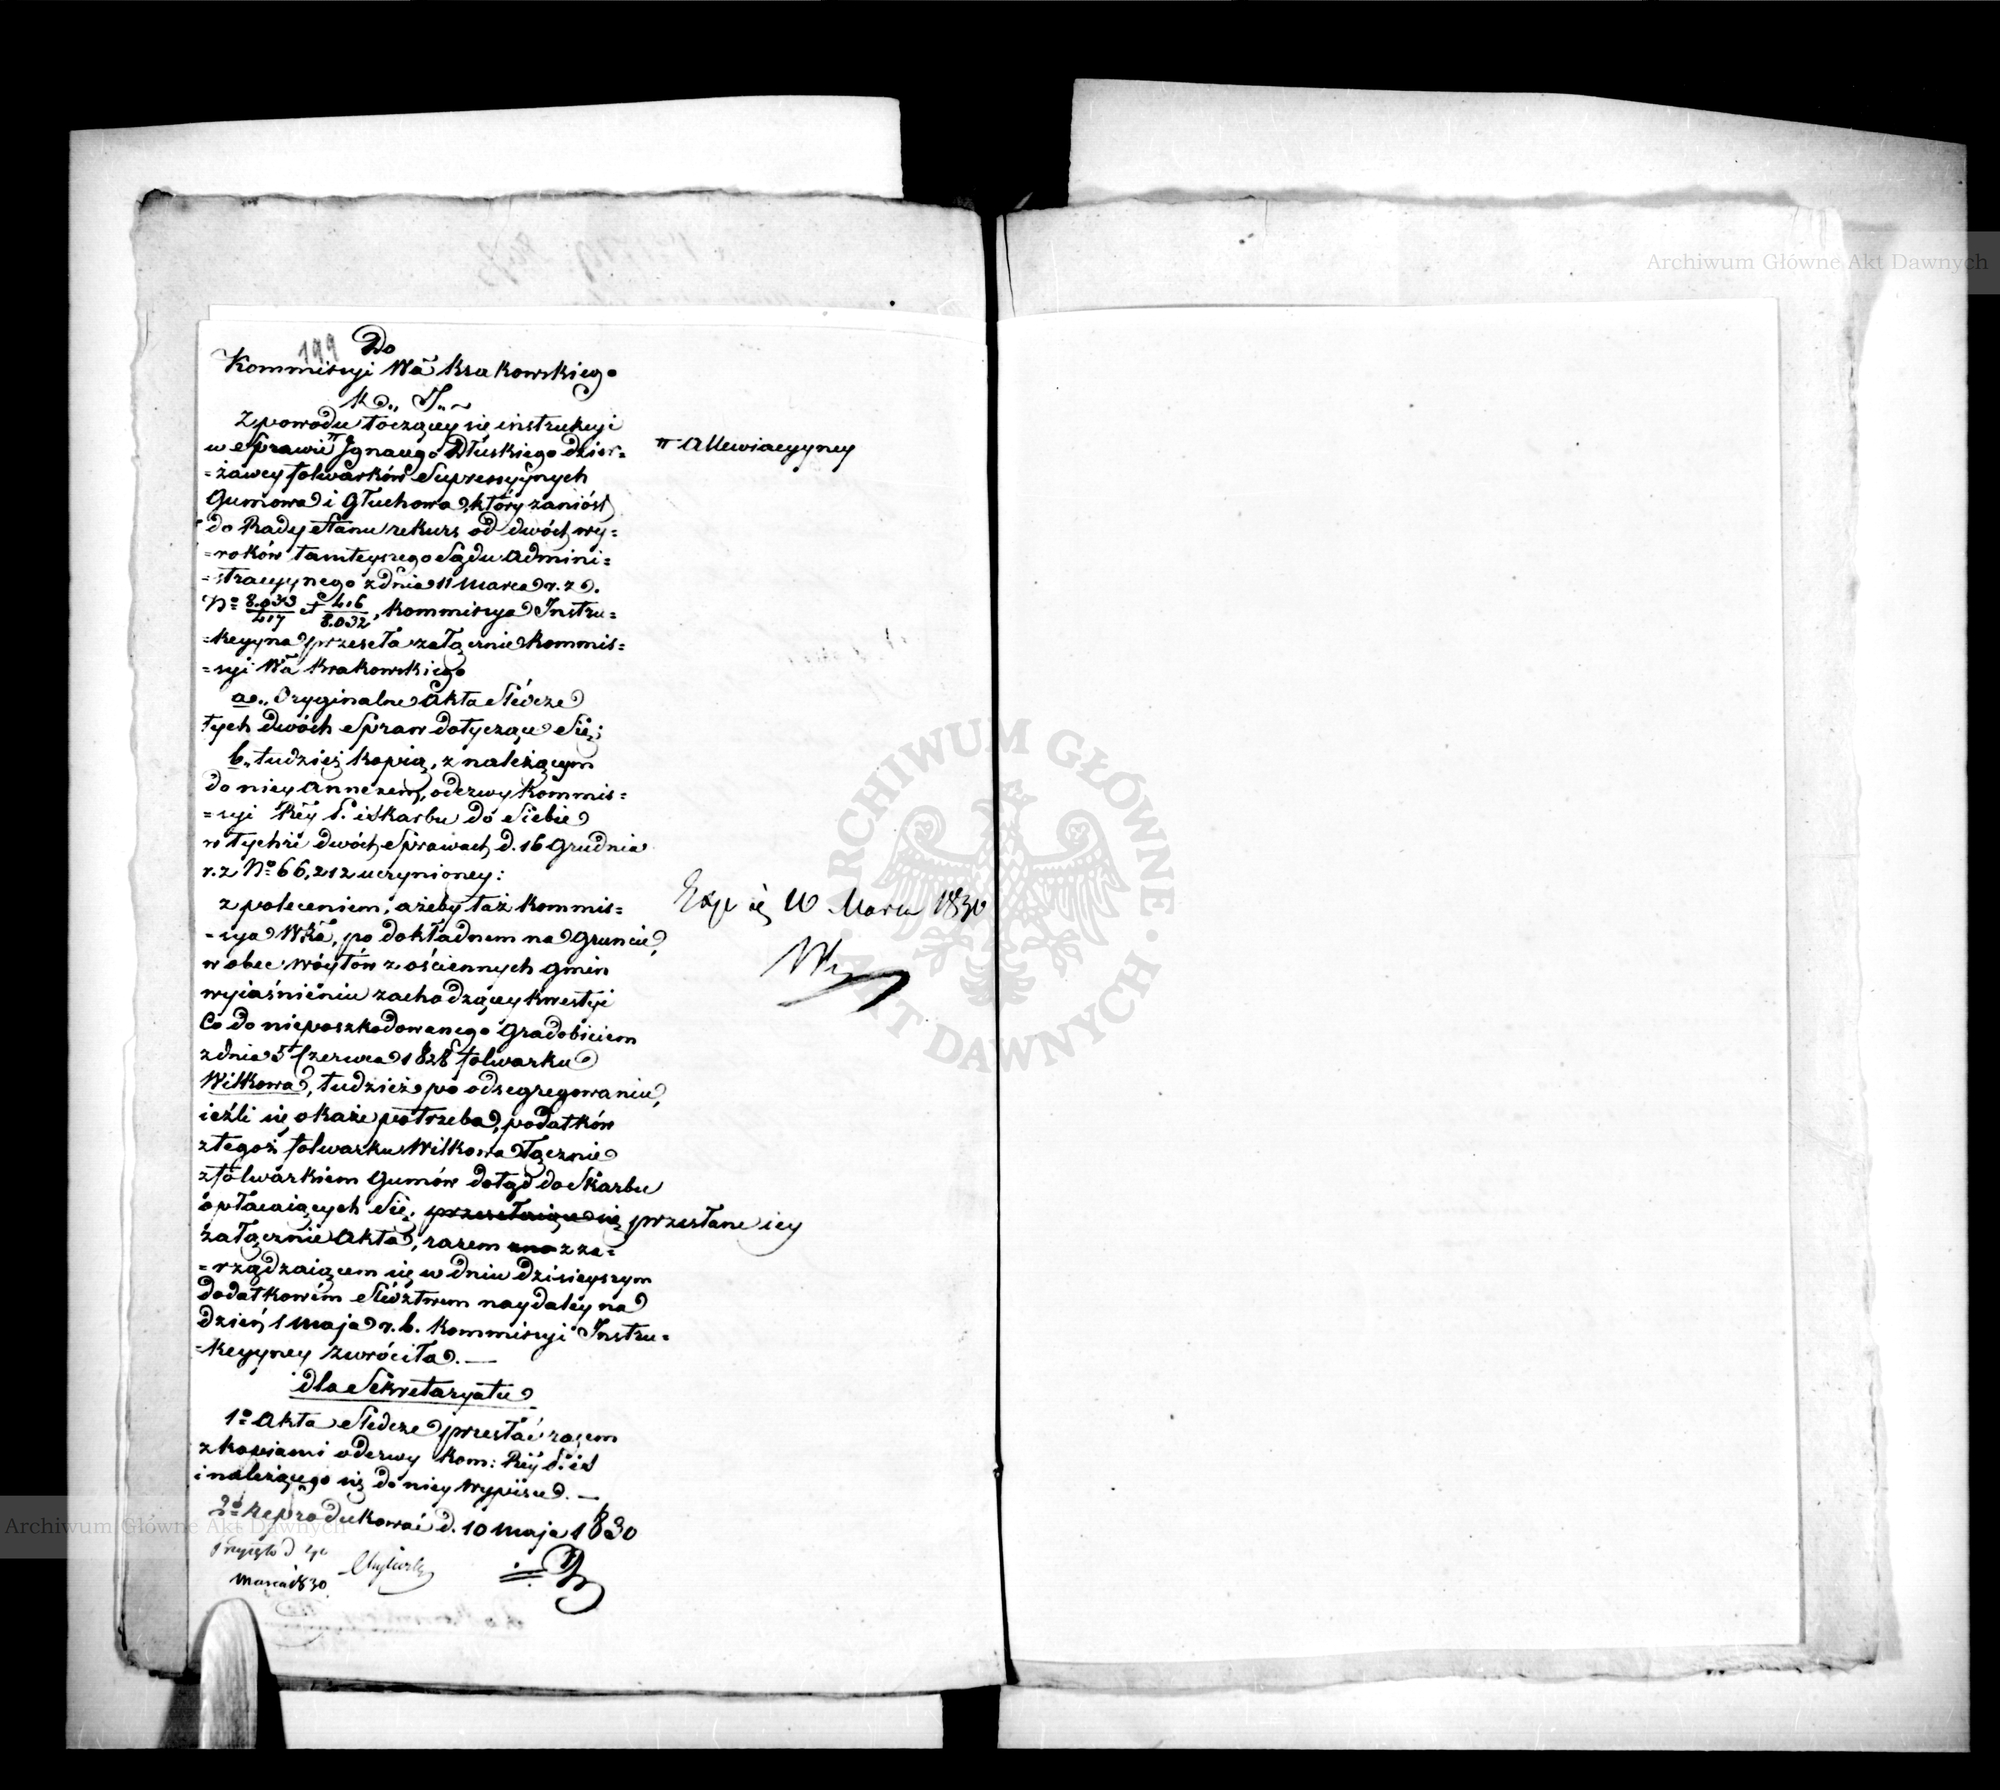 199
Do
Kommissyi Wa Krakowskiego
K. J.
Z powodu toczącey się instrukcyi
w Sprawie π Jgnacego Dłuskiego dzier=
=żawcy folwarków Supressyynych
Gumowa i Głuchowa, który zaniósł
do Rady Stanu rekurs od dwóch wy=
=roków tamteyszego Sądu Admini=
=stracyynego z dnia 11 Marca r. z.
No 8.033/417 et 416/8.032, Kommissya Instru=
=kcyyna przeseła załącznie Kommis=
=syi Wa Krakowskiego
a.. Oryginalne Akta Śledcze
tych dwóch Spraw dotyczące Się;
b.. tudzież kopią, z należącym
do niey Annexem, odezwy Kommis=
=syi Rzey P. i Skarbu do Siebie
w tychże dwóch Sprawach d. 16 Grudnia
r. z No 66,212 uczynioney:
z poleceniem, ażeby taż Kommis=
=sya Wka, po dokładnem na Gruncie,
w obec Wóytów z ościennych gmin
wyiaśnieniu zachodzącey kwestyi
Co do nieposzkodowanego Gradobiciem
z dnia 5 Czerwca 1828 folwarku
Wilkowa, tudzież po odsegregowaniu,
ieźli się okaże potrzeba, podatków
z tegoż folwarku Wilkowa łącznie
z folwarkiem Gumów dotąd do Skarbu
opłacaiących Się, przesełaiące się przesłane iey
załącznie Akta, razem z za=
=rządzaiącem się w dniu dzisieyszym
dodatkowém Śledztwem naydaléy na
dzień 1 Maja r. b. Kommissyi Instru=
=kcyyney zwróciła. —
dla Sekretaryatu
1o Akta Śledcze przesłać razem
z kopiami odezwy Kom: Rzey P. i S
i należącego się do niey Wypisu. —
2o Reprodukować d. 10 Maja 1830
Przyięto d
Marca 1830
π Allewiacyyney
Exp ię 10 Marca 1830
Archiwum Główne Akt Dawnych
Archiwum Główne Akt Dawnych
ARCHIWUM GŁÓWNE · AKT DAWNYCH ·